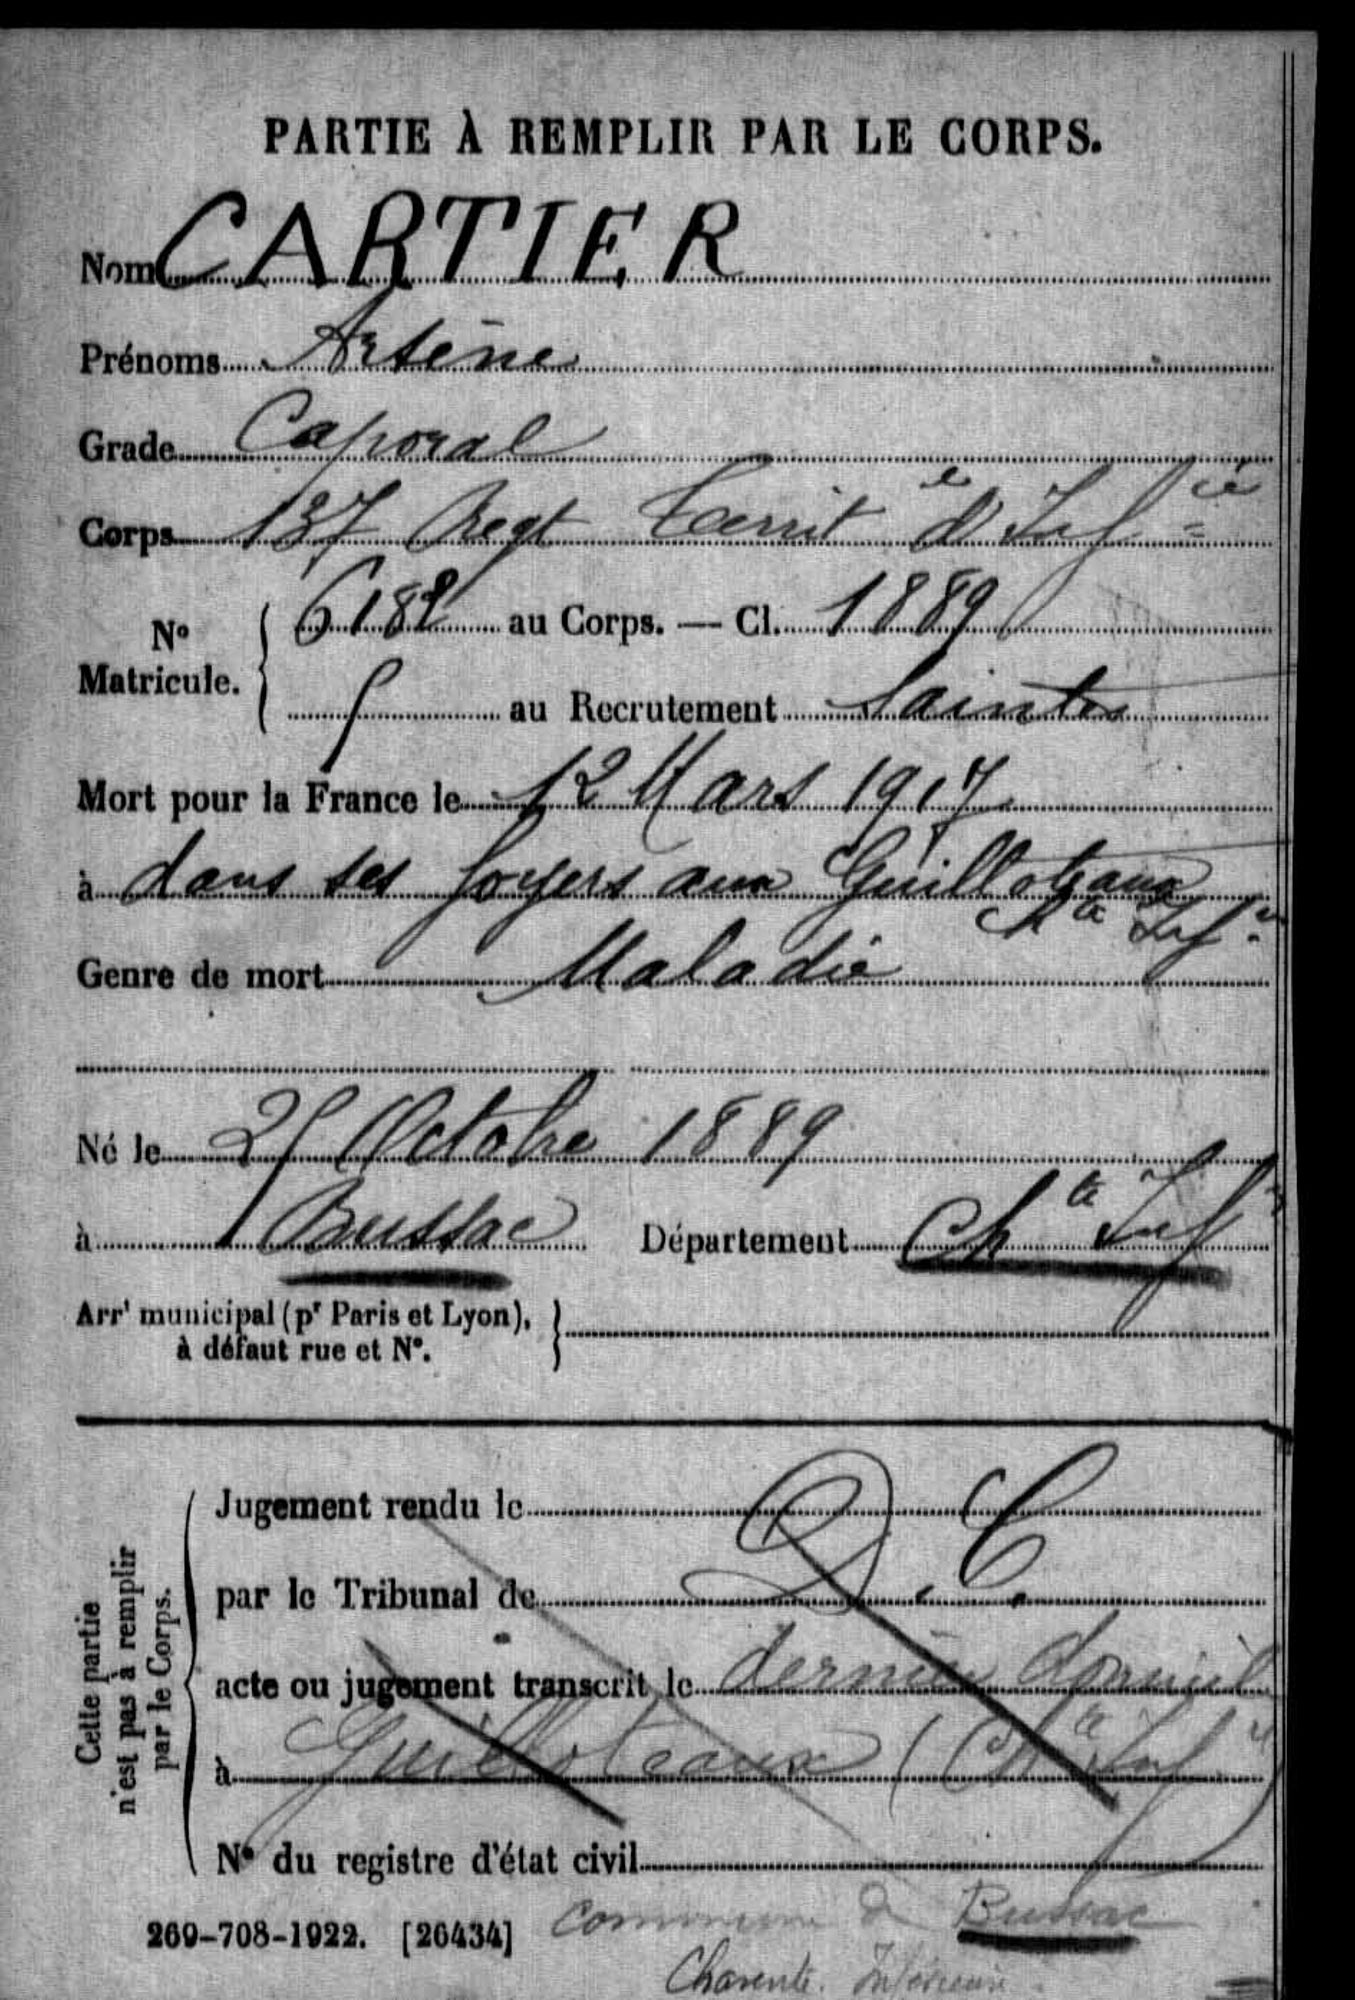 PARTIE À REMPLIR PAR LE CORPS.
Nom CARTIER
Prénoms Arsène
Grade Caporal
Corps 137 Regt Territ e d'Inf ie
N° Matricule. { 6182 au Corps. — Cl. 1889
5 au Recrutement Saintes
Mort pour la France le 12 Mars 1917
à dans ses foyers aux Guilloteaux
Ch te Inf re
Genre de mort Maladie
Né le 25 Octobre 1889
à Bussac Département Ch te Inf re
Arr t municipal (p r Paris et Lyon),
à défaut rue et N°.
Cette partie n'est pas à remplir par le Corps.
Jugement rendu le
par le Tribunal de D. C.
acte ou jugement transcrit le dernier domicile
à Guilloteaux (Ch te Inf re)
N° du registre d'état civil
269-708-1922. [26434] Commune de Bussac
Charente Inférieure